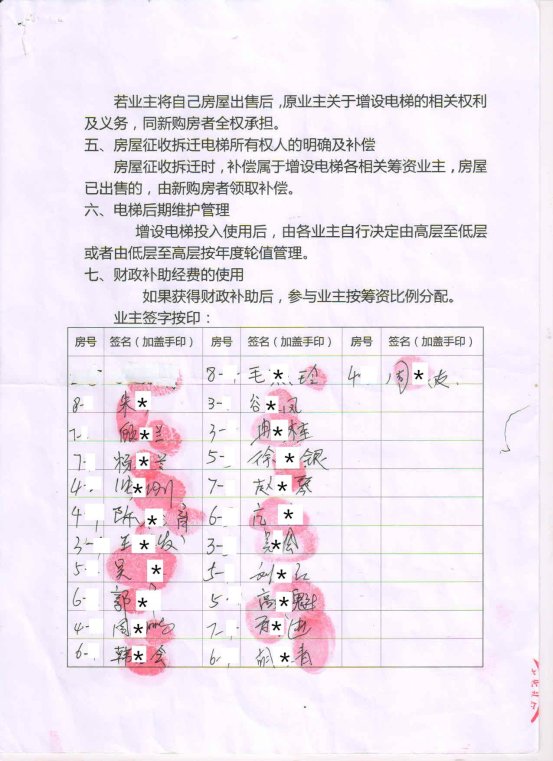 若业主将自己房屋出售后，原业主关于增设电梯的相关权利
及义务，同新购房者全权承担。
五、房屋征收拆迁电梯所有权人的明确及补偿
房屋征收拆迁时，补偿属于增设电梯各相关筹资业主，房屋
已出售的，由新购房者领取补偿。
六、电梯后期维护管理
增设电梯投入使用后，由各业主自行决定由高层至低层
或者由低层至高层按年度轮值管理。
七、财政补助经费的使用
如果获得财政补助后，参与业主按筹资比例分配。
业主签字按印：
房号 签名（加盖手印） 房号 签名（加盖手印） 房号 签名（加盖手印）
8- 毛*玲 4 周*
8- 朱* 3- 谷*凤
7- *兰 3-
7- 杨*兰 5- 徐*银
4- 7- 赵*琴
4 陈* 6- *
3- 王* 3-
5- 吴* 5- 刘*红
6- 郭* 5 高*魁
4- 周* 7-
6- 韩*会 6- 胡*青